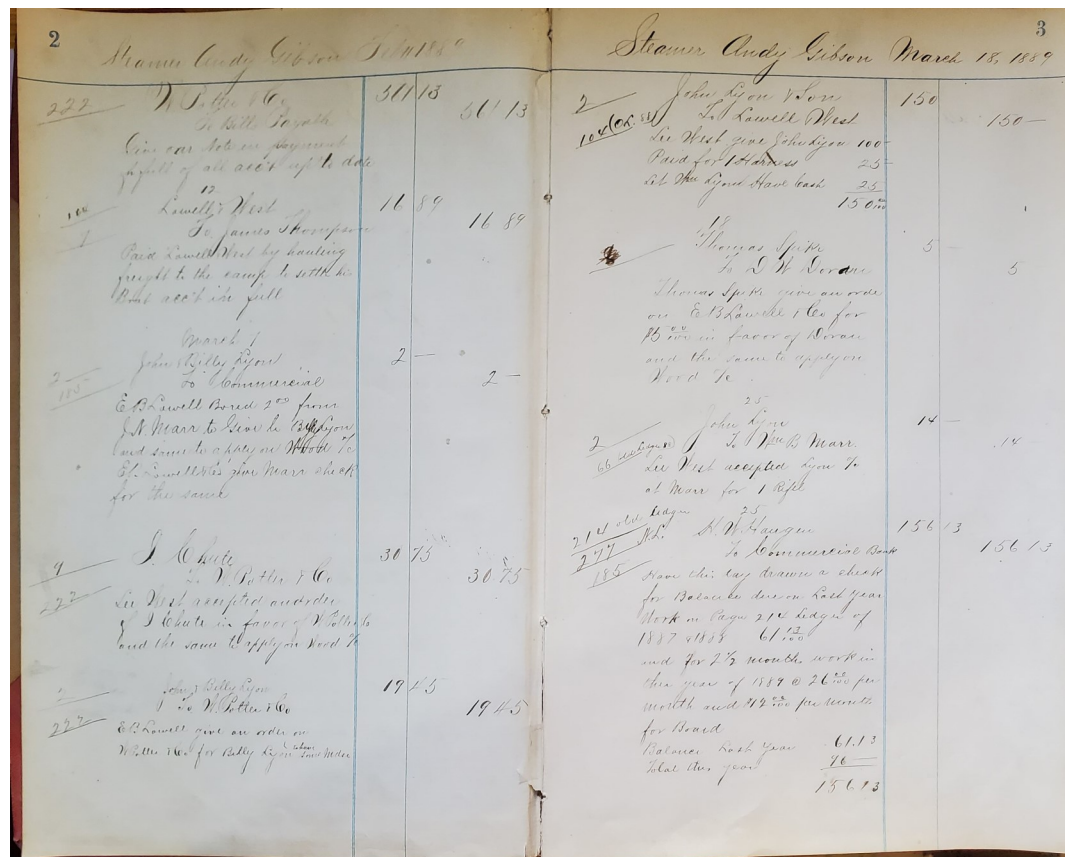 2
Steamer Andy Gibson Feby 1889
222
W Potter & Co 511 13
To Bills Payable 511 13
Give our Note in payment
in full of all acc't up to date
12
100 Lowell & West 16 89
1 To James Thompson 16 89
Paid Lowell & West by hauling
freight to the camp to settle his
Boat acc't in full
March 1
John & Billy Lyon 2 —
2 To Commercial 2 —
185
E B Lowell Bored 2.00 from
J. N. Marr to Give to Billy Lyon
and same to apply on Wood a/c
E B Lowell give Marr check
for the same
9 I Chute 30 75
222 To W Potter & Co 30 75
Lee West accepted an order
of I Chute in favor of W Potter & Co
and the same to apply on Wood a/c
2 John & Billy Lyon 19 45
To W. Potter & Co 19 45
222
E B Lowell give an order on
W Potter & Co for Billy Lyon
3
Steamer Andy Gibson March 18, 1889
2 John Lyon & Son 150
104 To Lowell West 150 —
Lee West give John Lyon 100
Paid for 1 Harness 25
Let Wm Lyon Have Cash 25
150 00/100
19
Thomas Spike 5 —
To D W Doran 5
Thomas Spike give an order
on E B Lowell & Co for
$5 00/100 in favor of Doran
and the same to apply on
Wood a/c
25
2 John Lyon 14 —
66 To Wm B Marr. 14 —
Lee West accepted Lyon a/c
at Marr for 1 Rifle
25
214 old Ledger H. W Haugen 156 13
277 N.L. To Commercial Bank 156 13
185
Have this day drawn a check
for Balance due on Last Year
Work on Page 214 Ledger of
1887 & 1888 61 13/100
and for 2 1/2 months work in
this year of 1889 @ 26 00/100 per
month and $12 00/100 per month
for Board
Balance Last Year 61.13
Total this year
156 13